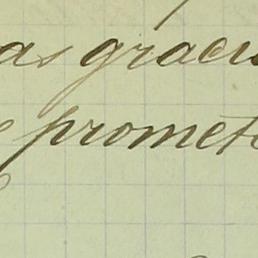 as graci
promet